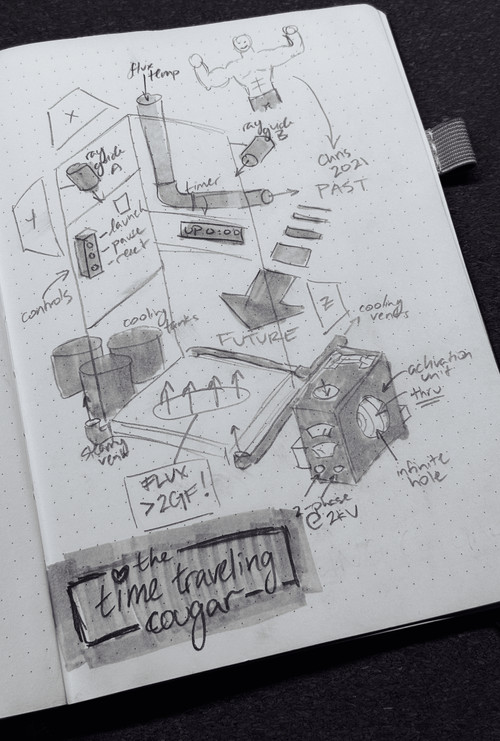 flux
temp
X
ray
guide
A
ray
guide
B
Chris
2021
PAST
timer
Y
launch
pause
reset
UP 0:00
controls
Z
cooling
vents
FUTURE
cooling
tanks
V
activation
unit
thru
infinite
hole
vent
FLUX
>2GF!
2-phase
@ 2kV
the
time traveling
cougar